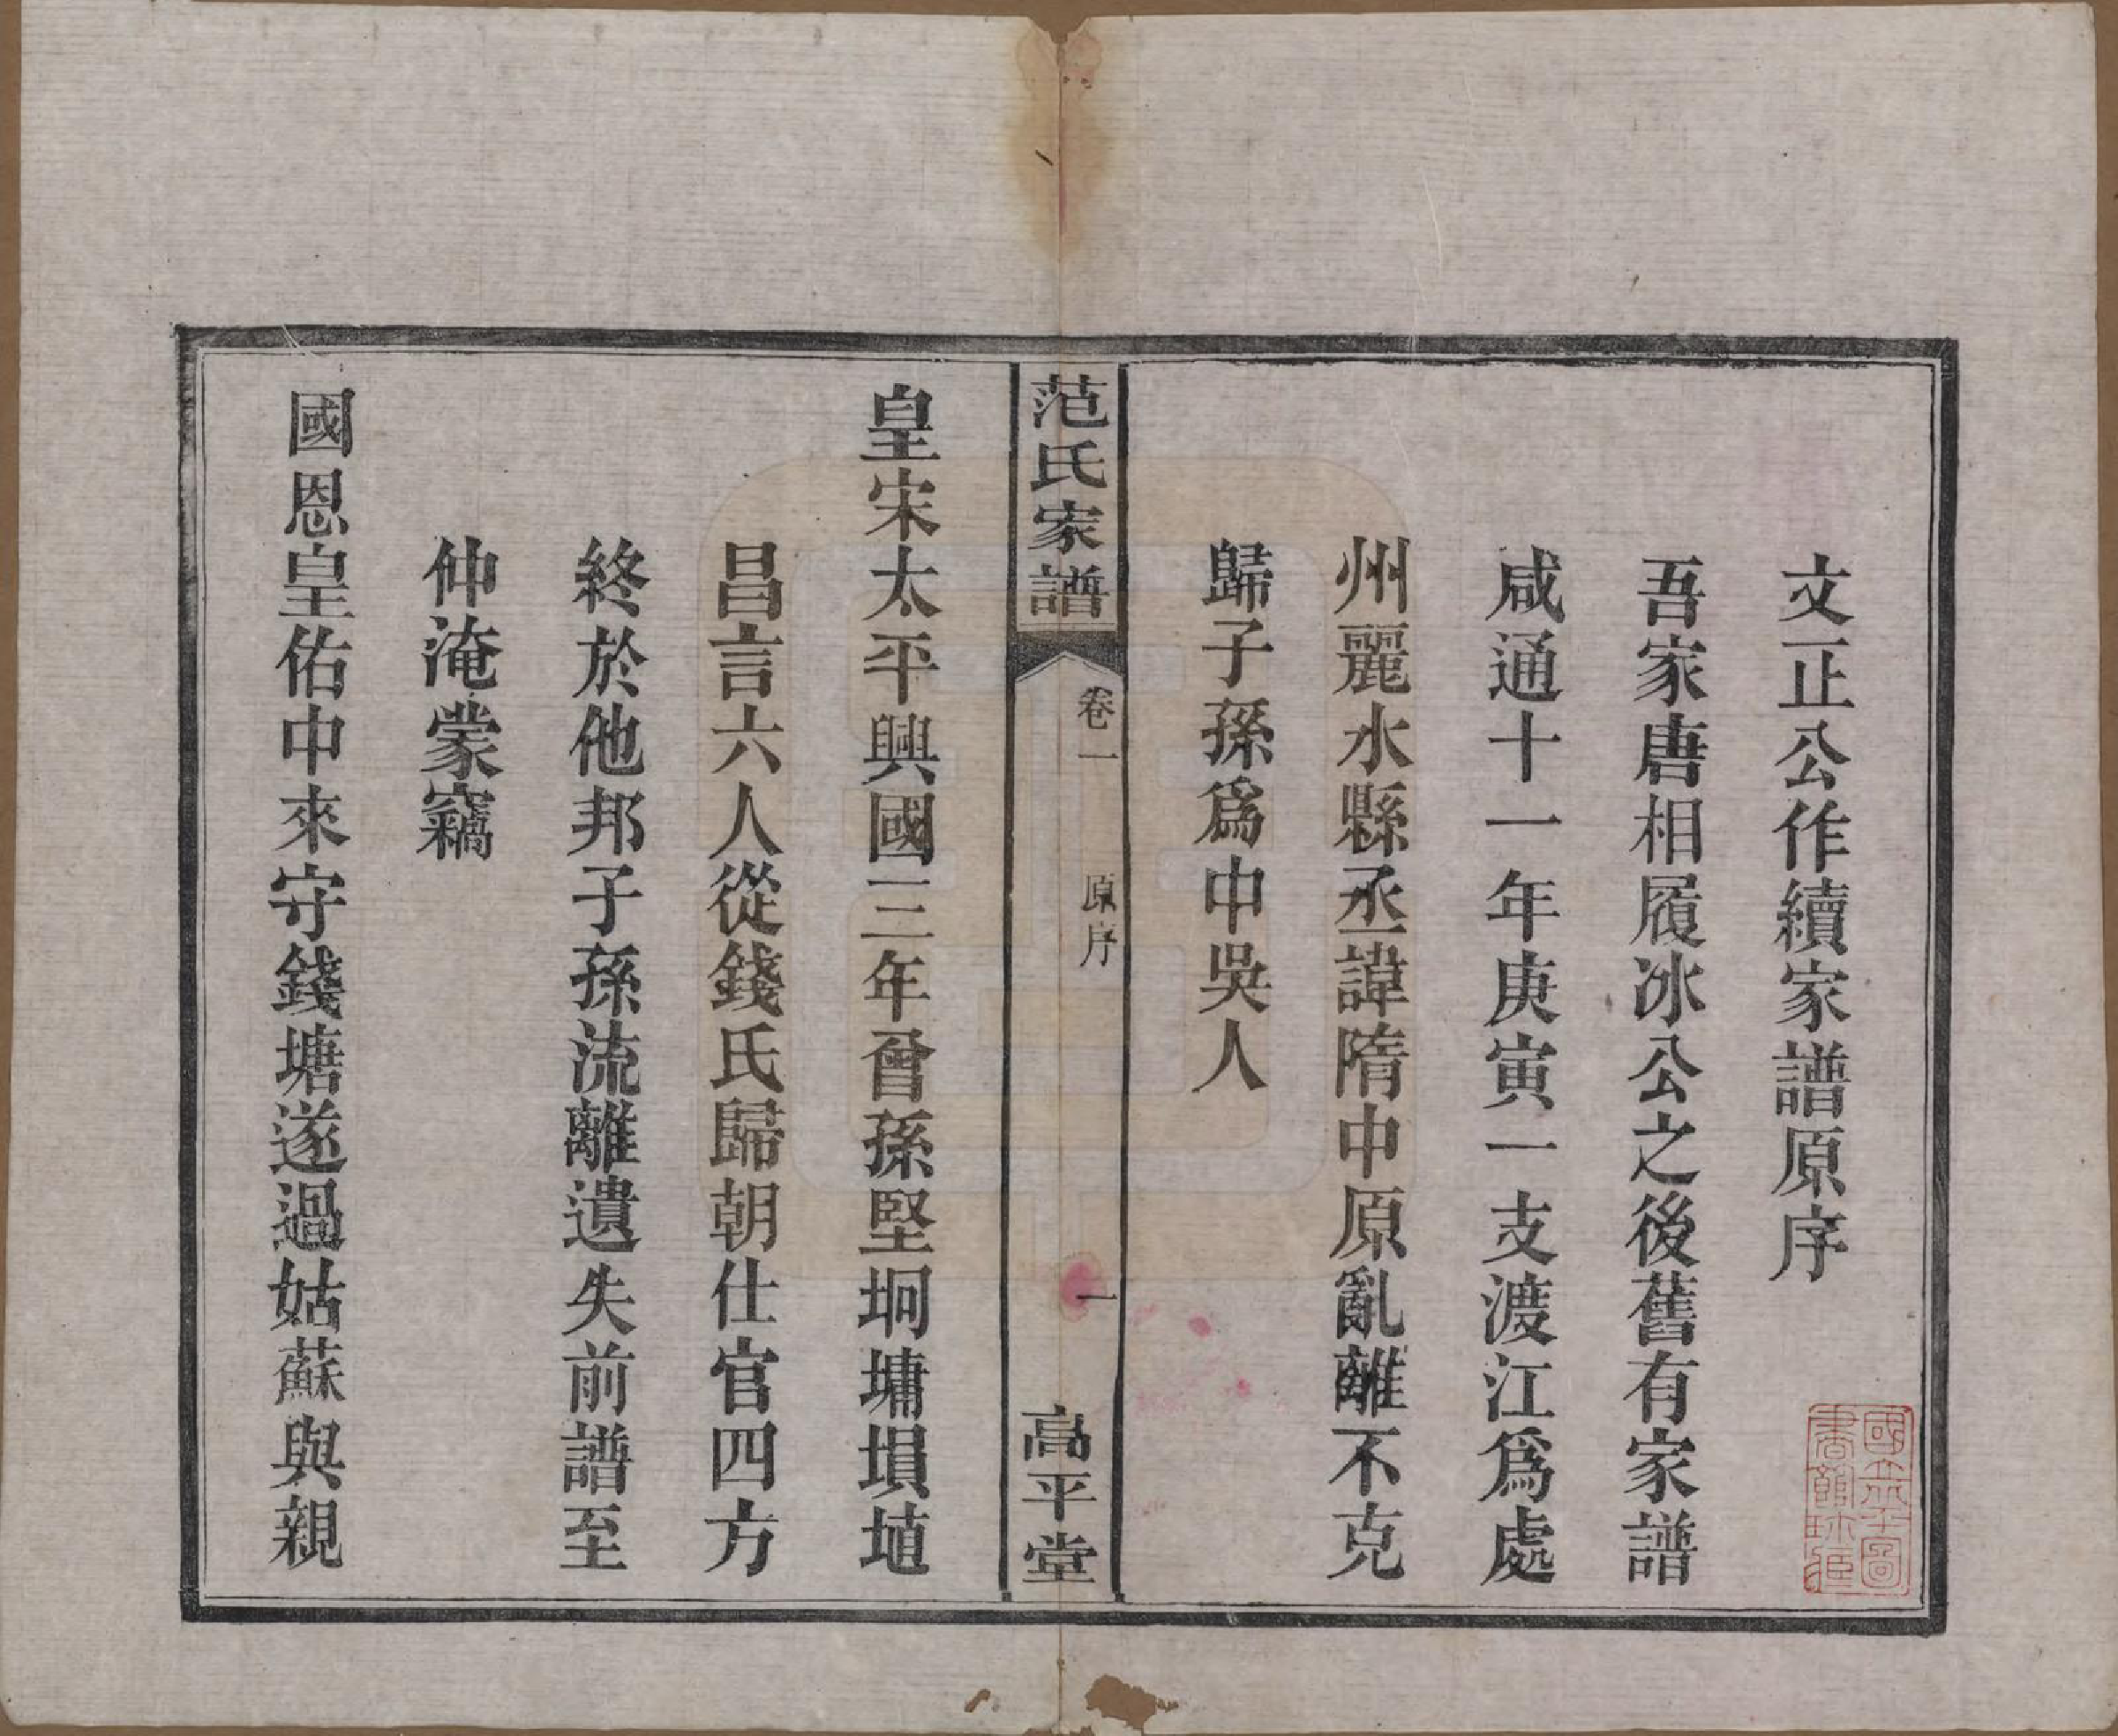 文正公作續家譜原序
吾家唐相履冰公之後舊有家譜
咸通十一年庚寅一支渡江爲處
州麗水縣丞諱隋中原亂離不克
歸子孫爲中吳人
范氏家譜
卷一
原序
一
高平堂
皇宋太平興國三年曾孫堅坰墉塤埴
昌言六人從錢氏歸朝仕官四方
終於他邦子孫流離遺失前譜至
仲淹蒙竊
國恩皇佑中來守錢塘遂過姑蘇與親
國立北平圖書館珍藏